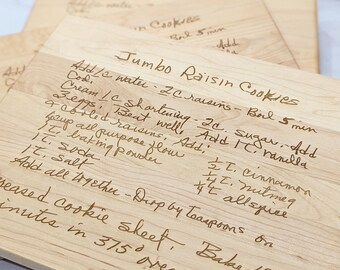 Jumbo Raisin Cookies
Add 1 C water - 2 C raisins - Boil 5 min
Cool.
Cream 1 C shortening - 2 C. sugar. Add
2 eggs. Beat well! Add 1 t. vanilla
& cooled raisins. Add:
4 cup all purpose flour
1 t. baking powder
1 t. Soda
1 t. Salt
½ t. cinnamon
¼ t. nutmeg
¼ t. allspice
Add all together - Drop by Teaspoons on
greased cookie sheet. Bake
minutes in 375° oven
Boil 5 min
Add